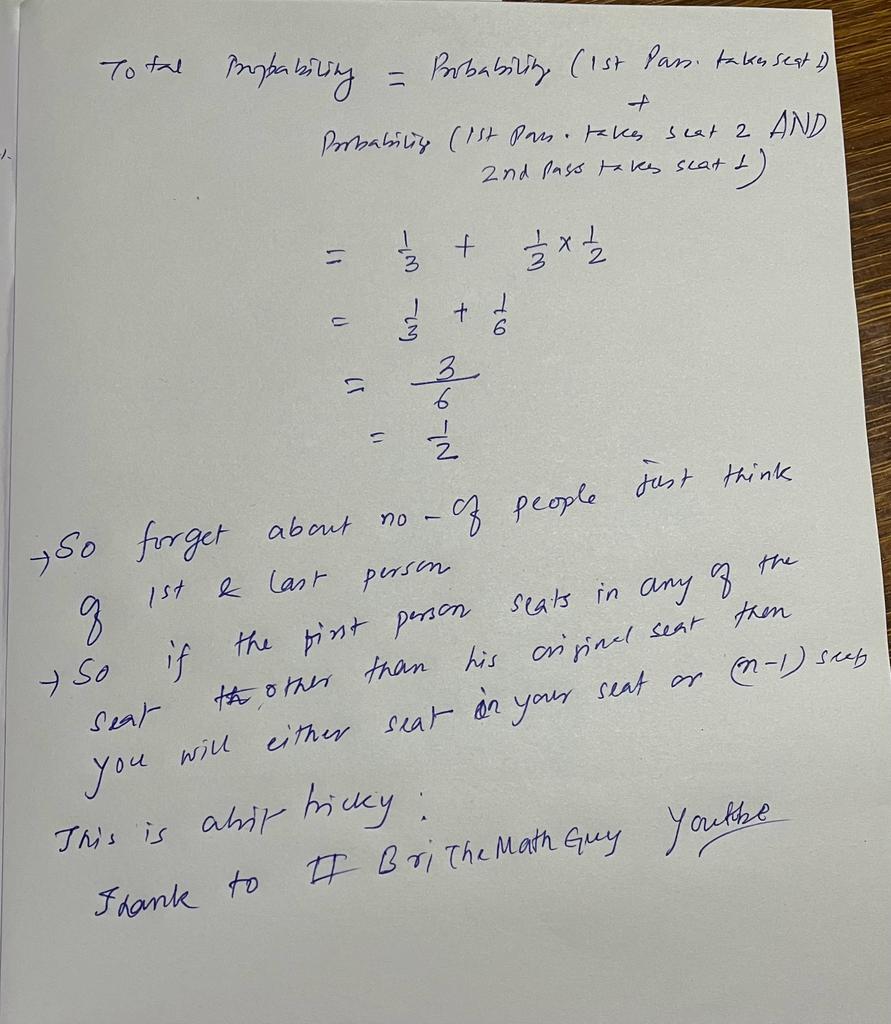 Total Probability = Probability (1st Pass. takes seat 1)
+
Probability (1st Pass. takes seat 2 AND
2nd Pass takes seat 1)
= 1/3 + 1/3 x 1/2
= 1/3 + 1/6
= 3/6
= 1/2
→ So forget about no - of people just think
of 1st & last person
→ So if the first person seats in any of the
seat other than his original seat then
you will either seat in your seat or (n-1) seats
This is abit tricky :
Thank to BriTheMathGuy Youtube